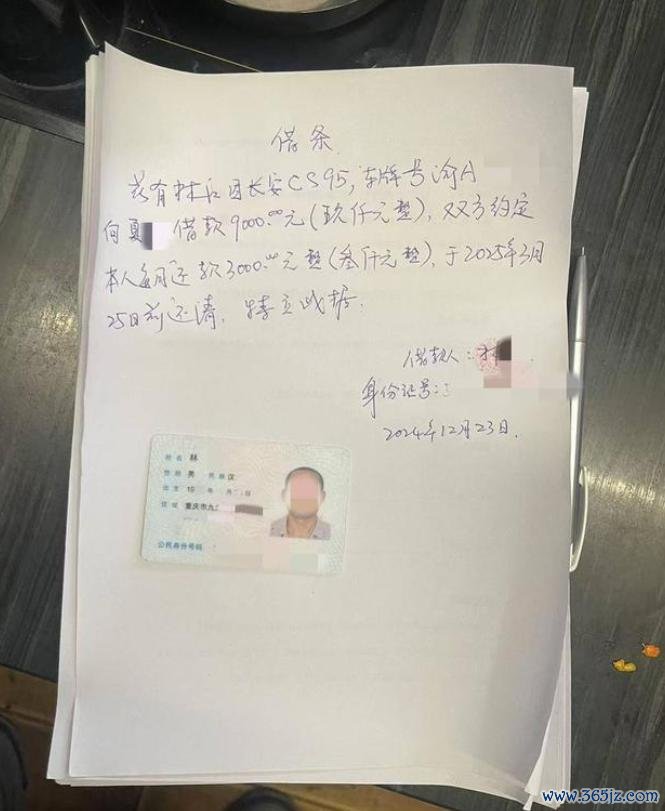 借条
兹有林 因长安CS95,车牌号渝A
向夏 借款9000.00元(玖仟元整),双方约定
本人每月还款3000.00元整(叁仟元整),于2025年3月
25日前还清,特立此据.
借款人:林
身份证号:
2024年12月23日.
姓名 林
性别 男 民族 汉
出生 19 年 月 日
住址 重庆市九
公民身份号码
www.365jz.com